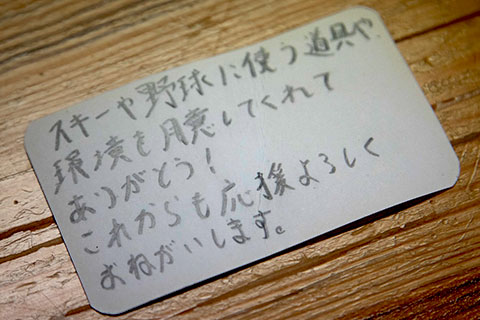 スキーや野球に使う道具や、
環境を用意してくれて
ありがとう!
これからも応援よろしく
おねがいします。